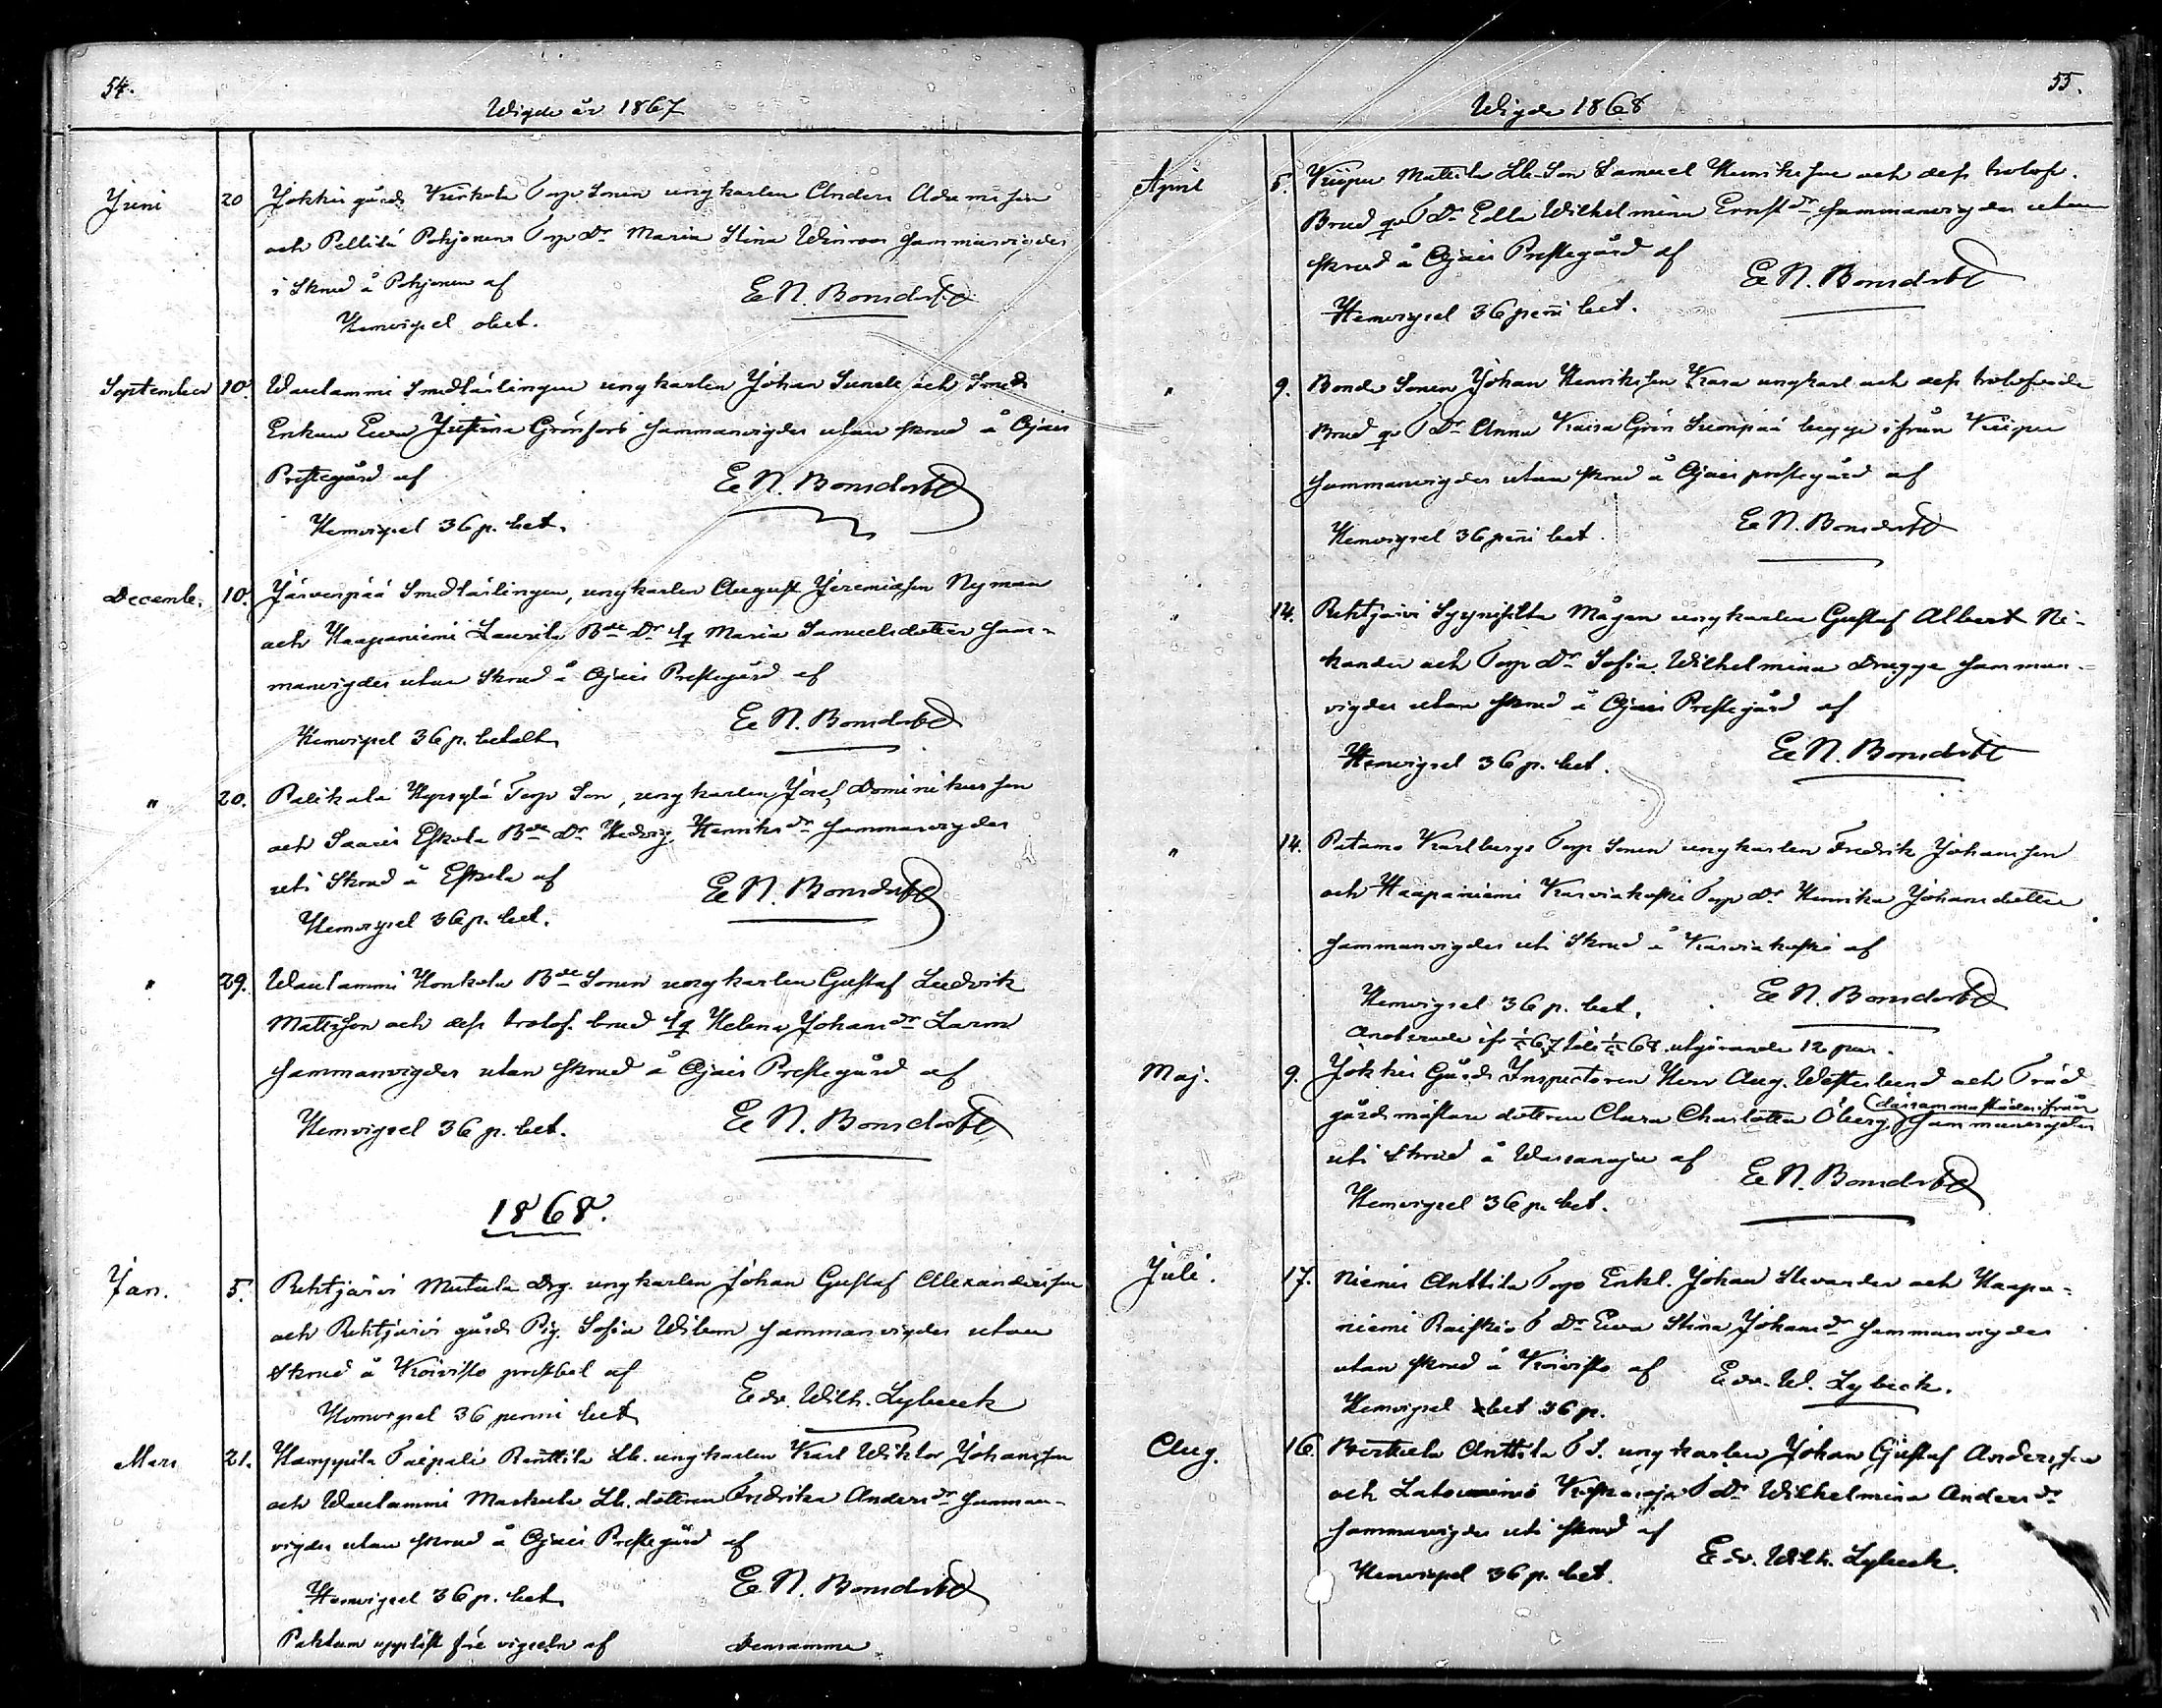 54.
Wigde år 1867
Juni 20 Jokkis gårds Kurkola Torp Sonen ungkarlen Anders Adamsson
och Pellilä Pohjonens Torp Dr Maria Stina Winroos sammanvigdes
i Skrud å Pohjonen af E N. Bonsdorff
Hemvigsel obet.
September 10. Waulammi Smedlärlingen ungkarlen Johan Sundell och Smeds
Enkan Eva Justina Grönfors sammanvigdes utan skrud å Ojais
Prestegård af E N. Bonsdorff
Hemvigsel 36 p. bet.
Decemb. 10. Järvenpää Smedlärlingen, ungkarlen August Jeremiasson Nyman
och Haapaniemi Laurila Bde Dr Maria Samuelsdotter sam-
manvigdes utan Skrud å Ojais Prestegård af
E N. Bonsdorff
Hemvigsel 36 p. betalt
" 20. Palikala Torp Son, ungkarlen Josef Dominikusson
och Saaris Eskola Bde Dr Hedvig Henriksdr sammanvigdes
uti Skrud å Eskola af E N. Bonsdorff
Hemvigsel 36 p. bet.
" 29. Waulammi Honkola Bde Sonen ungkarlen Gustaf Ludvik
Mattsson och dess trolof. brud Helena Johansdr Larm
sammanvigdes utan skrud å Ojais Prestegård af
Hemvigsel 36 p. bet. E N. Bonsdorff
1868.
Jan. 5. Rehtijärvi Mutula Drg. ungkarlen Johan Gustaf Alexandersson
och Rehtijärvi gårds Pig. Sofia Wilem sammanvigdes utan
Skrud å Koivisto prestbol af
Edv. Wilh. Lybeck
Hemvigsel 36 penni bet.
Mars 21. Talpali Renttilä Lb. ungkarlen Karl Wiktor Johansson
och Waulammi Markula Lb. dottren Fredrika Andersdr samman-
vigdes utan skrud å Ojais Prestegård af
Hemvigsel 36 p. bet. E N. Bonsdorff
Paktum uppläst före vigseln af densamme.
55.
Wigde 1868
April 5. Kuipu Mattila Lb. Son Samuel Henriksson och dess trolof.
Brud T Dr Edla Wilhelmina Ernstdr sammanvigdes utan
skrud å Ojais Prestegård af
E N. Bonsdorff
Hemvigsel 36 peni bet.
" 9. Bonde Sonen Johan Henriksson Krara ungkarl och dess trolofvade
Brud T Dr Anna Kaisa Grön Suonpää begge ifrån Kuipu
sammanvigdes utan skrud å Ojais prestegård af
Hemvigsel 36 peni bet. E N. Bonsdorff
" 14. Rehtijärvi Syynisilta Mågen ungkarlen Gustaf Albert Ni-
kander och Torp Dr Sofia Wilhelmina Drugge samman-
vigdes utan skrud å Ojais Prestegård af
Hemvigsel 36 p. bet. E N. Bonsdorff
" 14. Patamo Karlbergs Torp Sonen ungkarlen Fredrik Johansson
och Haapaniemi Karviakoski Torp Dr Henrika Johansdotter
sammanvigdes uti Skrud å Karviakoski af
Hemvigsel 36 p. bet. E N. Bonsdorff
67 till 68 utgörande 12 par.
Maj. 9. Jokkis Gårds Inspectoren Herr Aug. Westerlund och Träd-
gårdsmästare dottren Clara Charlotta Öberg därsammastädes ifrån sammanvigdes
uti Skrud å Warsanoja af
Hemvigsel 36 p. bet. E N. Bonsdorff
Juli. 17. Niemis Anttila Torp Enkl. Johan Stevander och Haapa-
niemi Raiskio T Dr Eva Stina Johansdr sammanvigdes
utan skrud å Koivisto af Edv. W. Lybeck.
Hemvigsel bet 36 p.
Aug. 16. Anttila T S. ungkarlen Johan Gustaf Andersson
och Latovainio T Dr Wilhelmina Andersdr
sammanvigdes uti skrud af
Edv. Wilh. Lybeck.
Hemvigsel 36 p. bet.